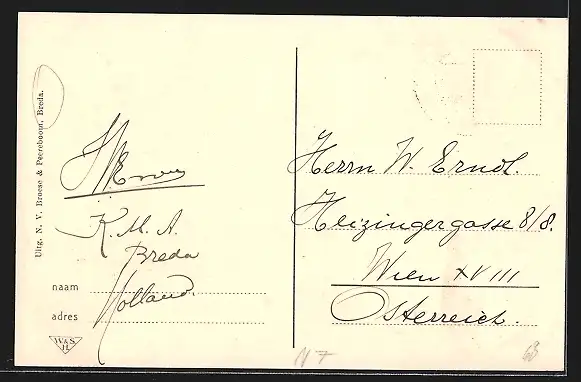 Uitg. N. V. Broese & Peereboom, Breda.
K. M. A.
Breda
Holland.
naam
adres
W & S
Herrn W. Erndl.
Heizingergasse 8/8.
Wien XVIII
Österreich.